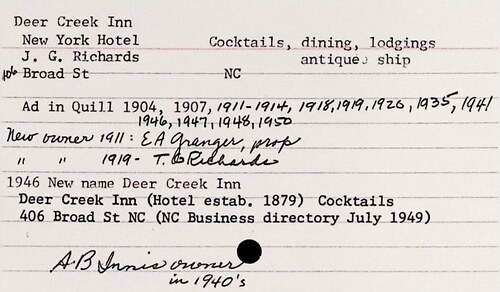 Deer Creek Inn
New York Hotel Cocktails, dining, lodgings
J. G. Richards antique ship
406 Broad St NC
Ad in Quill 1904, 1907, 1911-1914, 1918, 1919, 1920, 1935, 1941
1946, 1947, 1948, 1950
New owner 1911: E A Granger, prop
" " 1919- T. G Richards
1946 New name Deer Creek Inn
Deer Creek Inn (Hotel estab. 1879) Cocktails
406 Broad St NC (NC Business directory July 1949)
A B Innis owner
in 1940's